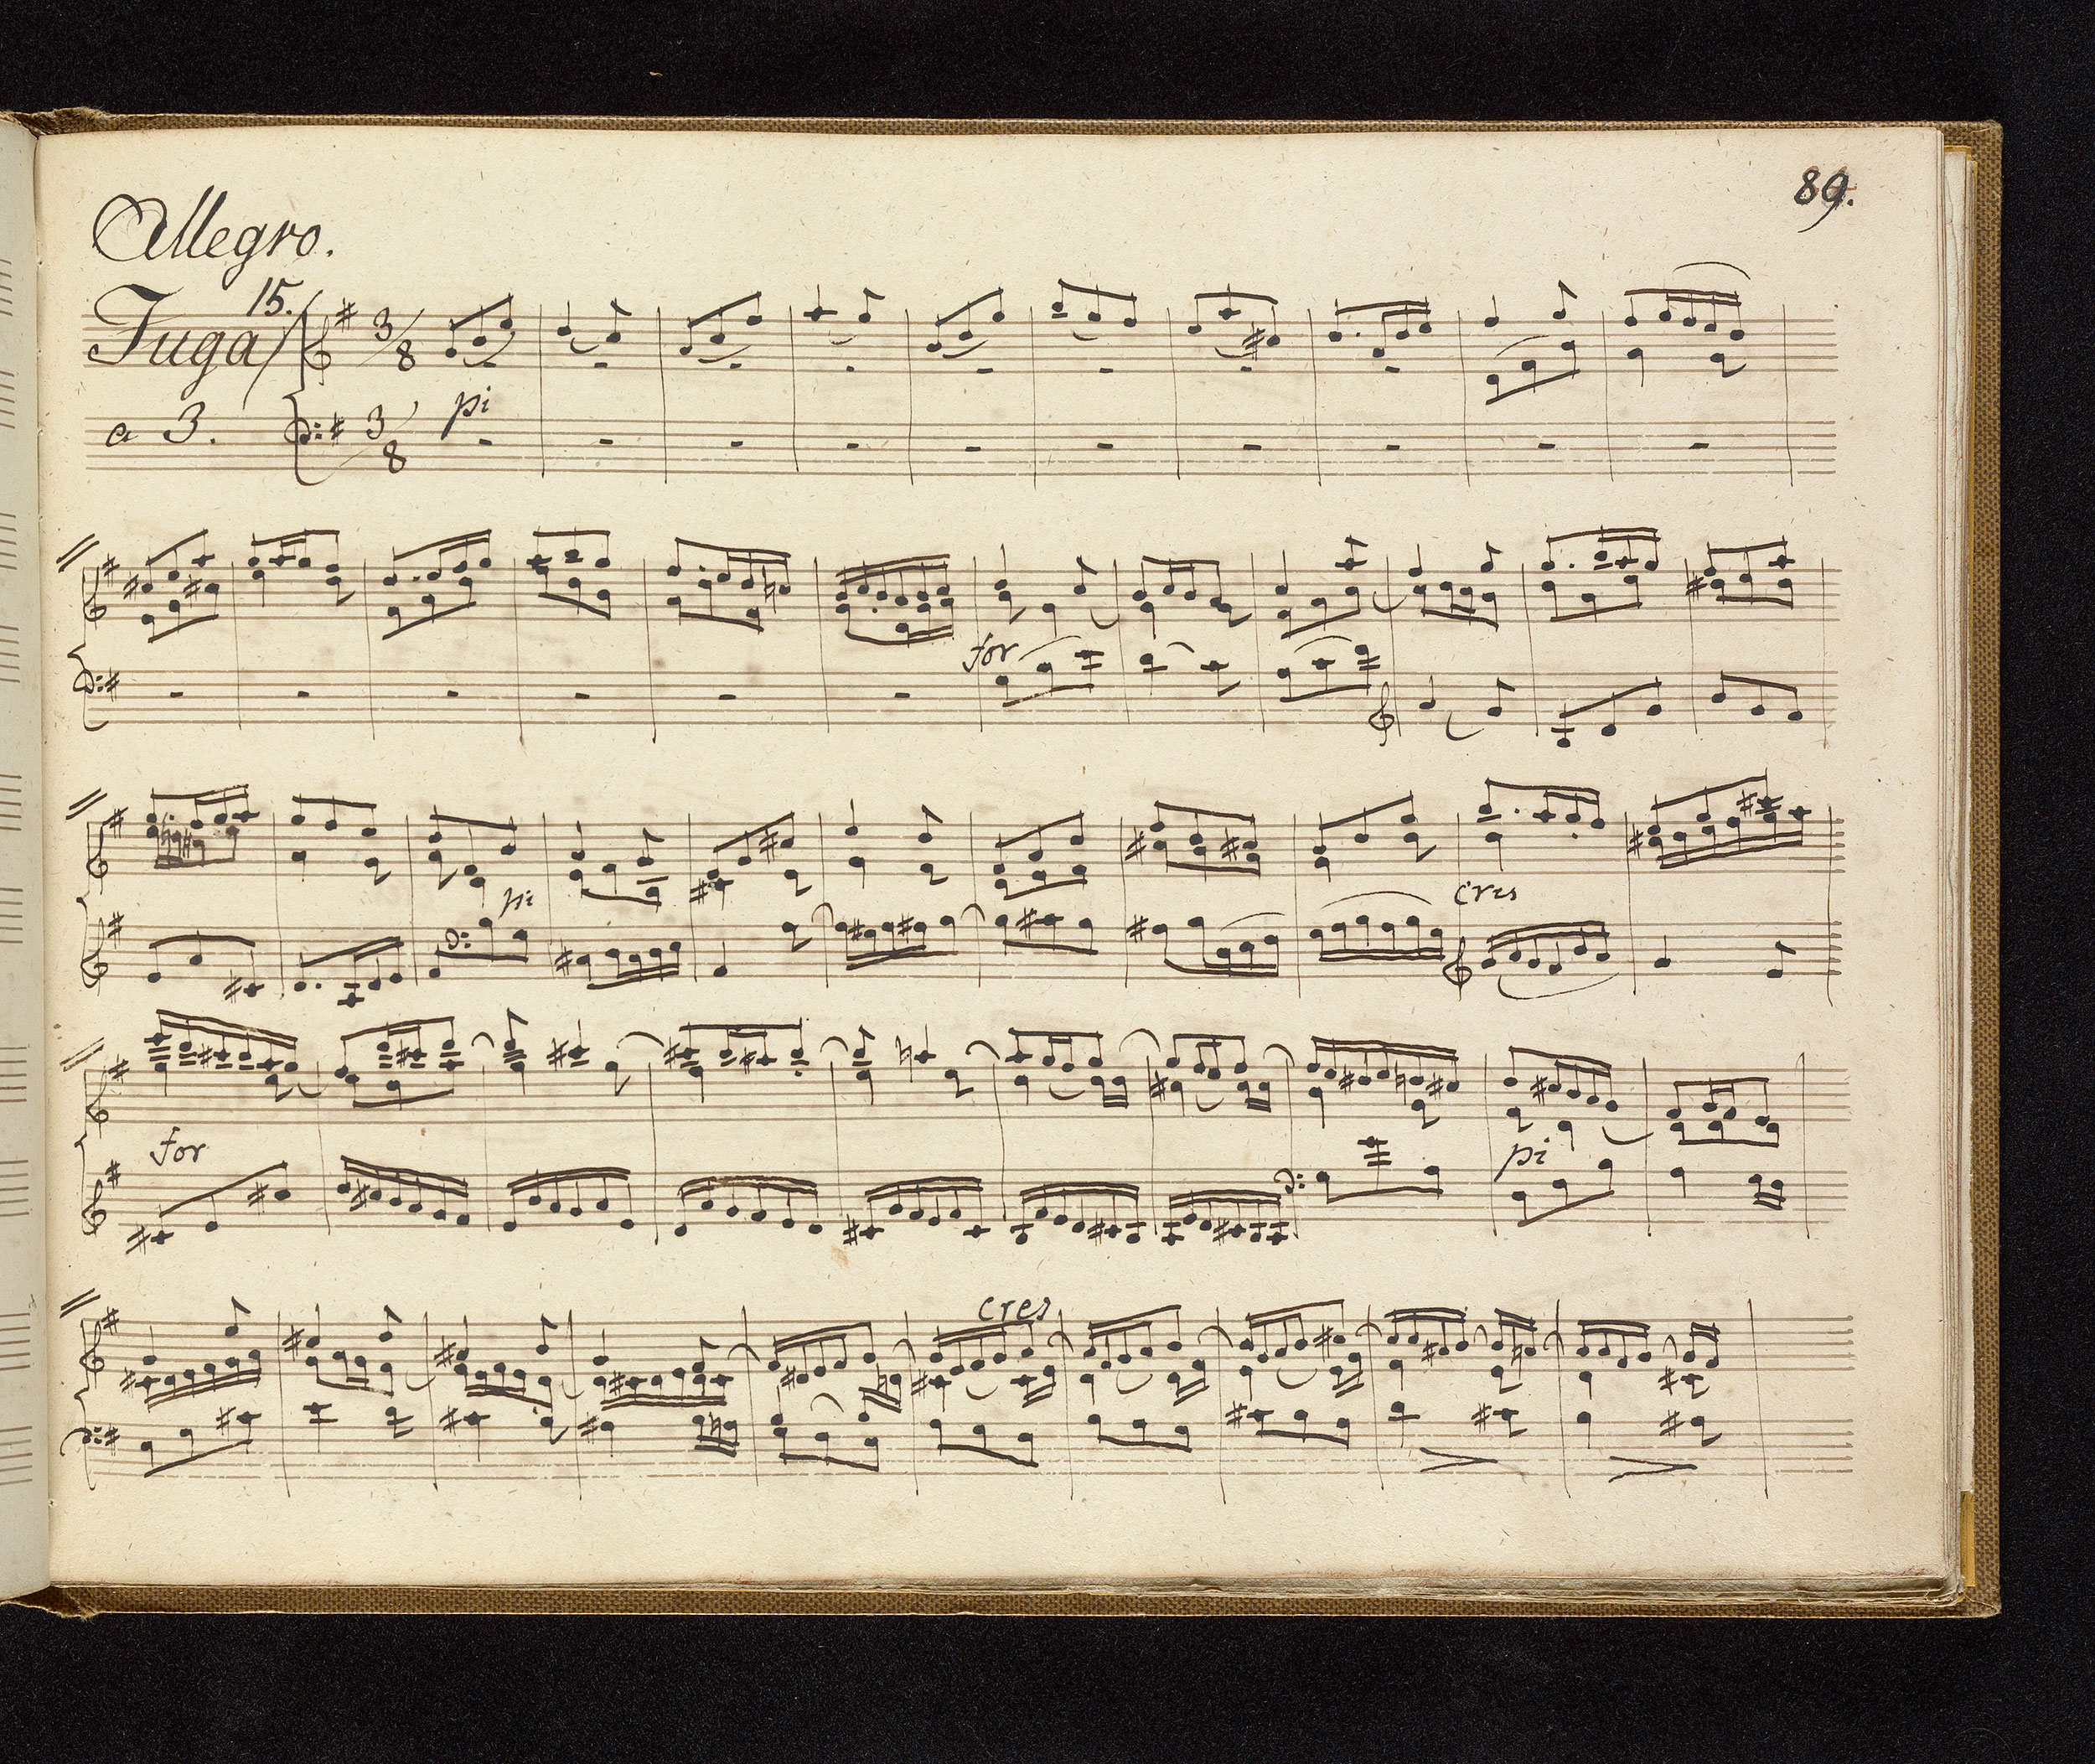 89.
Allegro.
Fuga 15.
3/8
pi
a 3.
3/8
for
pi
cres
for
pi
cres